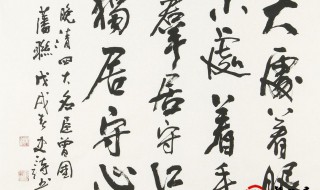 大處着眼
小處着手
羣居守
獨居守心
晚清四大名臣曾國
藩聯戊戌